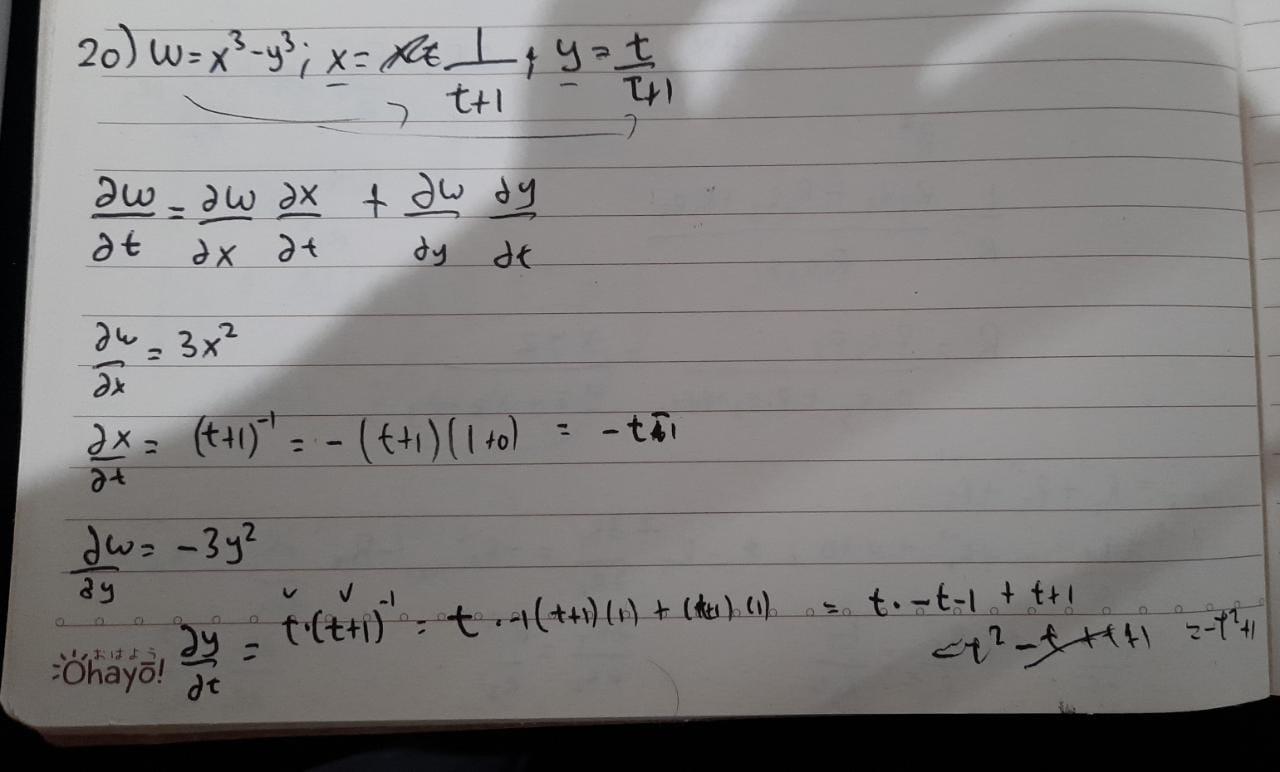 20) w = x³ - y³ ; x = 1/(t+1) ; y = t/(t+1)
∂w/∂t = ∂w/∂x ∂x/∂t + ∂w/∂y ∂y/∂t
∂w/∂x = 3x²
∂x/∂t = (t+1)⁻¹ = -(t+1)(1+0) = -t-1
∂w/∂y = -3y²
∂y/∂t = t·(t+1)⁻¹ = t · -1(t+1)(1) + (t+1)·(1) = t·-t-1 + t+1
-t² - t + t + 1 = -t²+1
おはよう
Ohayō!